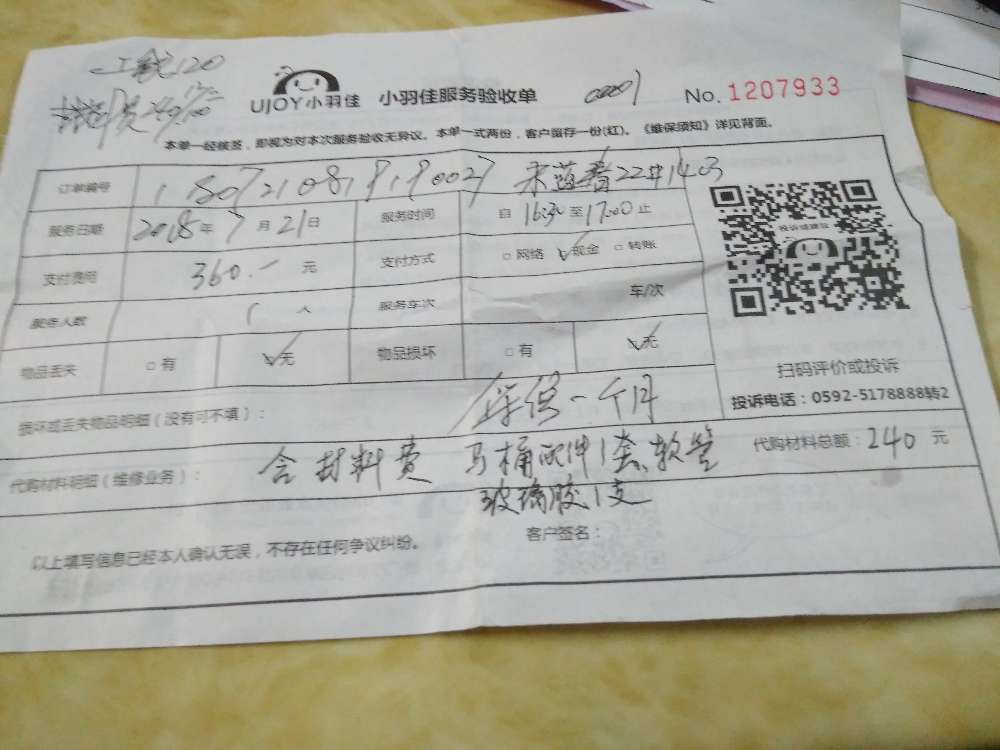 工钱120
材料费240
UJOY小羽佳 小羽佳服务验收单 00001 No. 1207933
本单一经核签，即视为对本次服务验收无异议。本单一式两份，客户留存一份(红)。《维保须知》详见背面。
订单编号 22#1403
服务日期 2018年7月21日 服务时间 自16:30至17:00止
支付费用 360.- 元 支付方式 □网络 √现金 □转账
服务人数 1 人 服务车次 车/次
物品丢失 □有 √无 物品损坏 □有 √无
投诉或建议
扫码评价或投诉
投诉电话：0592-5178888转2
损坏或丢失物品明细（没有可不填）： 保一个月
代购材料明细（维修业务）： 含材料费 马桶配件1套、软管 代购材料总额：240 元
玻璃胶1支
以上填写信息已经本人确认无误，不存在任何争议纠纷。 客户签名：